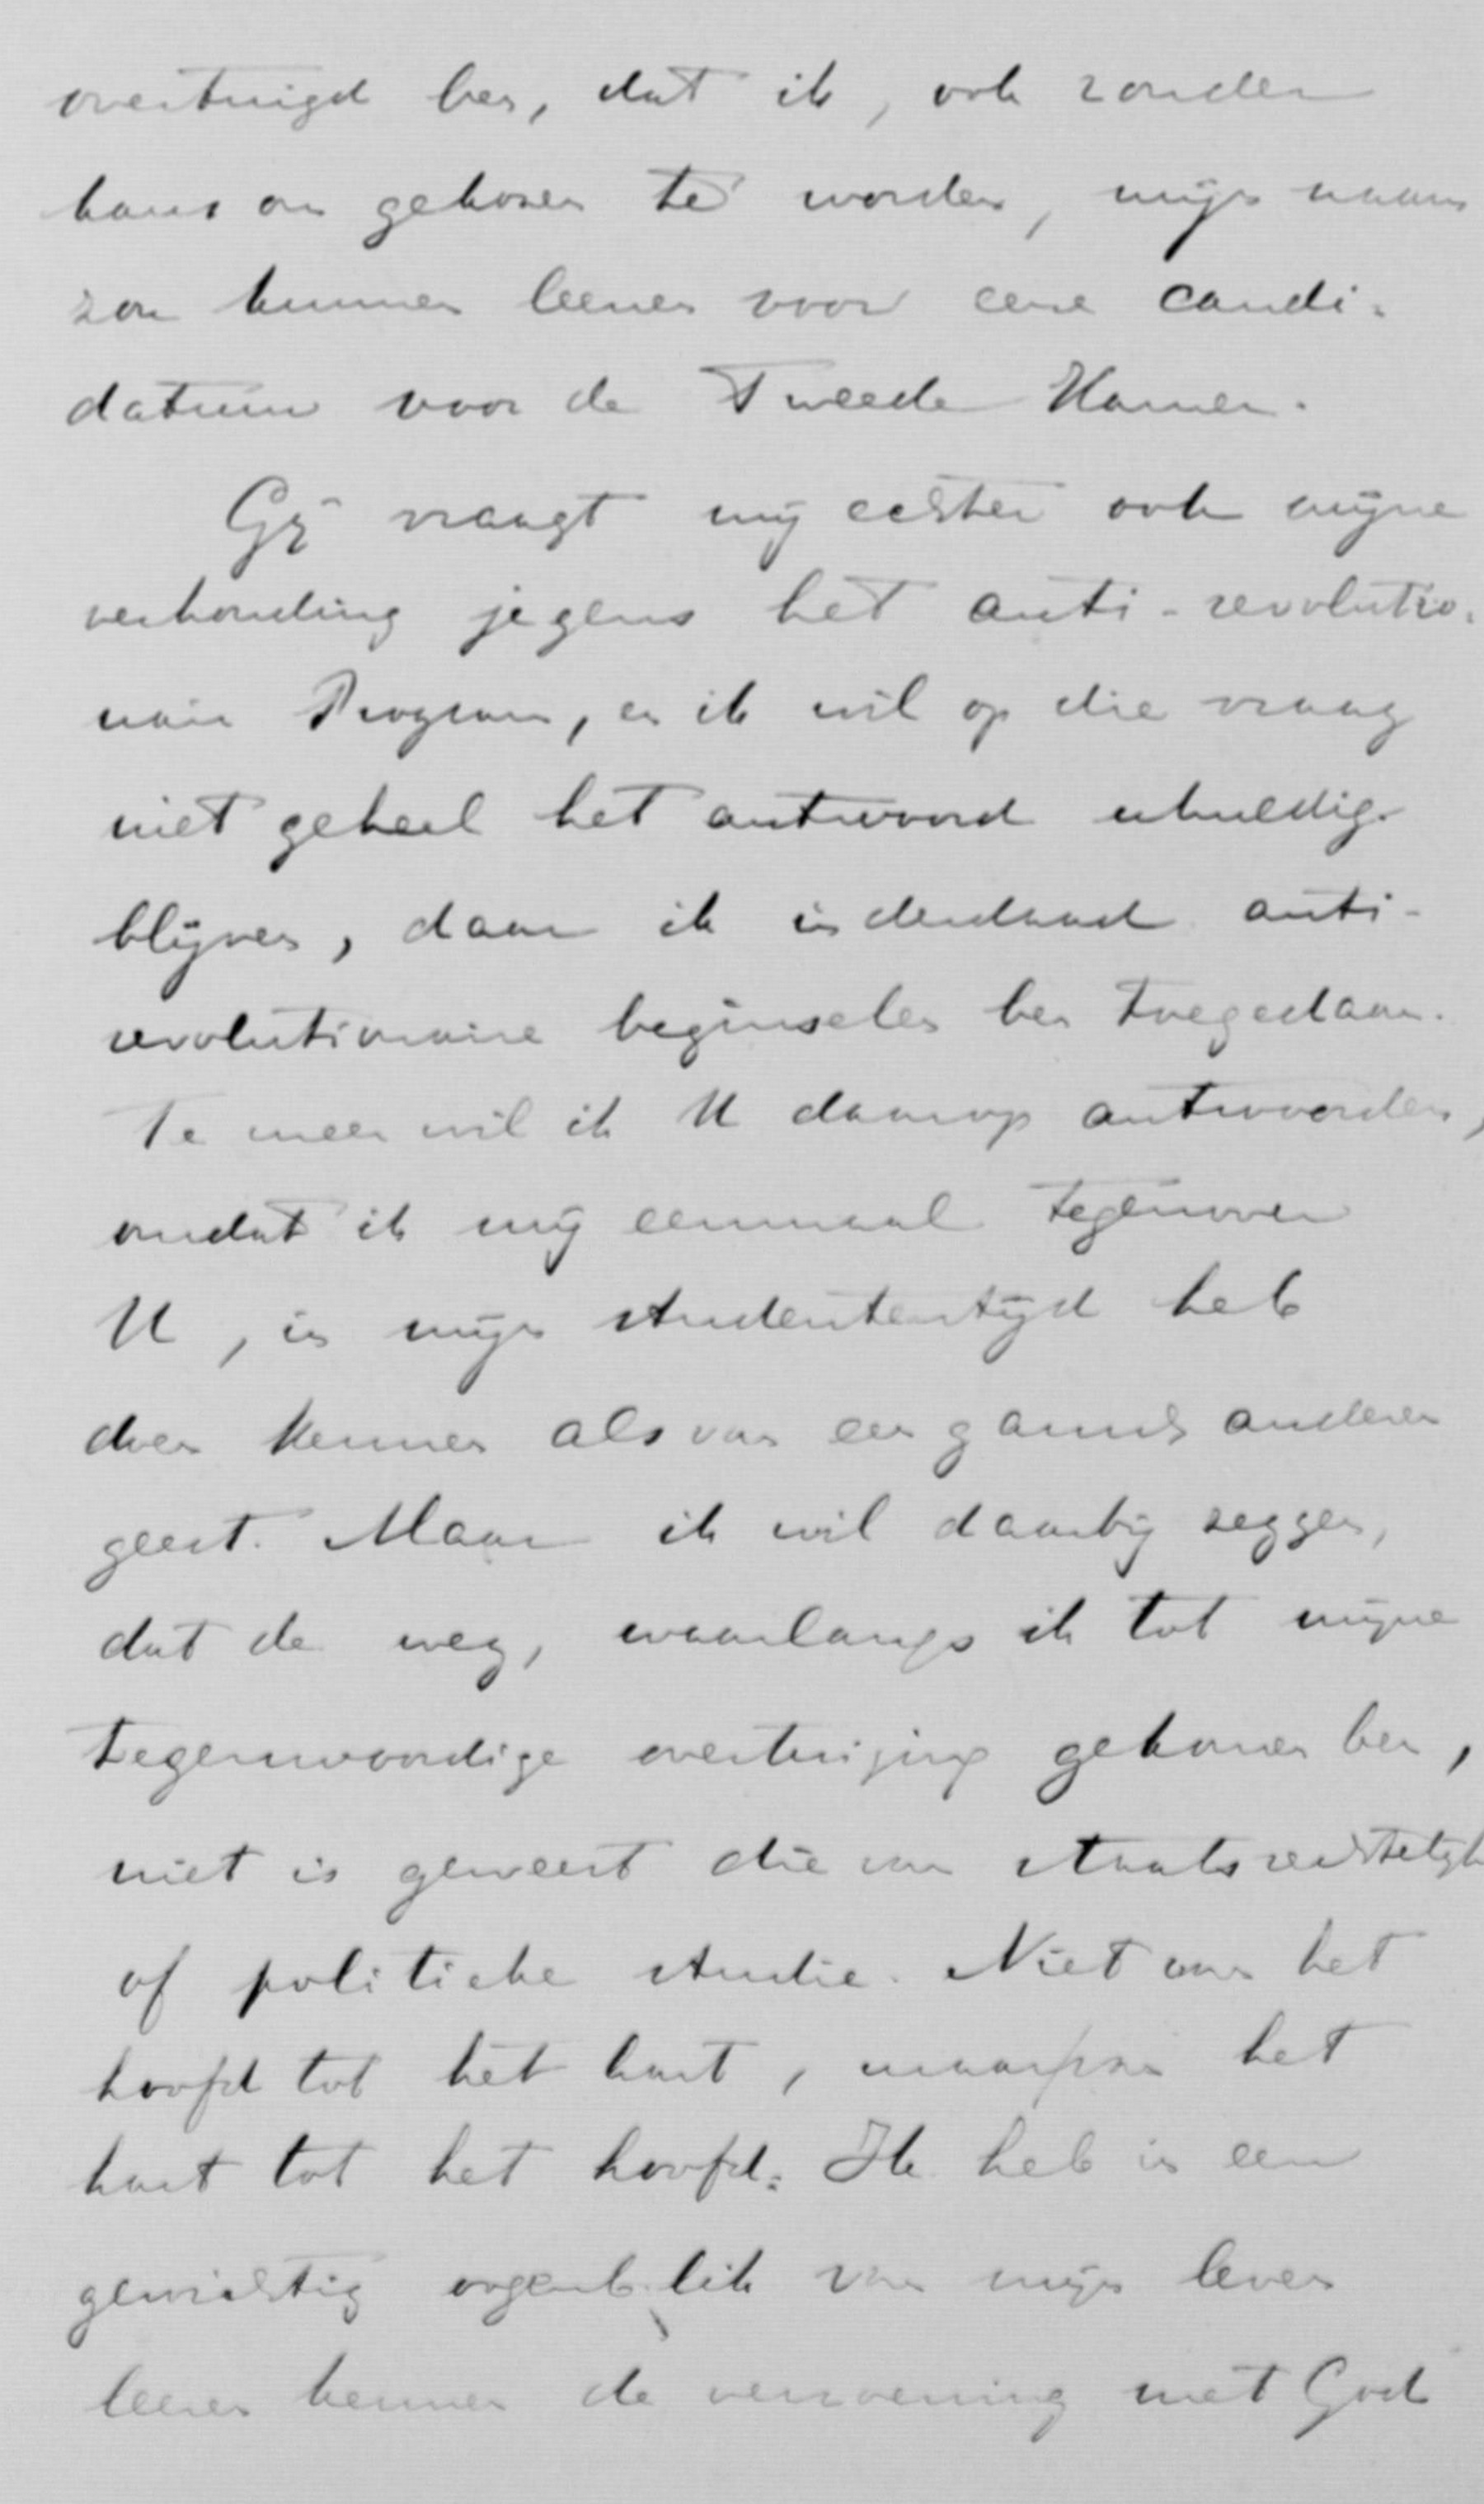 overtuigd ben, dat ik, ook zonder
kans om gekozen te worden, mijn naam
zou kunnen leenen voor eene candi-
datuur voor de Tweede Kamer.
Gij vraagt mij echter ook mijne
verhouding jegens het anti-revolutio-
nair Program, en ik wil op die vraag
niet geheel het antwoord schuldig
blijven, daar ik inderdaad anti-
revolutionaire beginselen ben toegedaan.
Te meer wil ik U daarop antwoorden,
omdat ik mij eenmaal tegenover
U, in mijn studententijd heb
doen kennen als van een gansch anderen
geest. Maar ik wil daarbij zeggen,
dat de weg, waarlangs ik tot mijne
tegenwoordige overtuiging gekomen ben,
niet is geweest die van staatsrechtelijk
of politieke studie. Niet van het
hoofd tot het hart, maar van het
hart tot het hoofd. Ik heb in een
gewichtig oogenblik van mijn leven
leeren kennen de verzoening met God